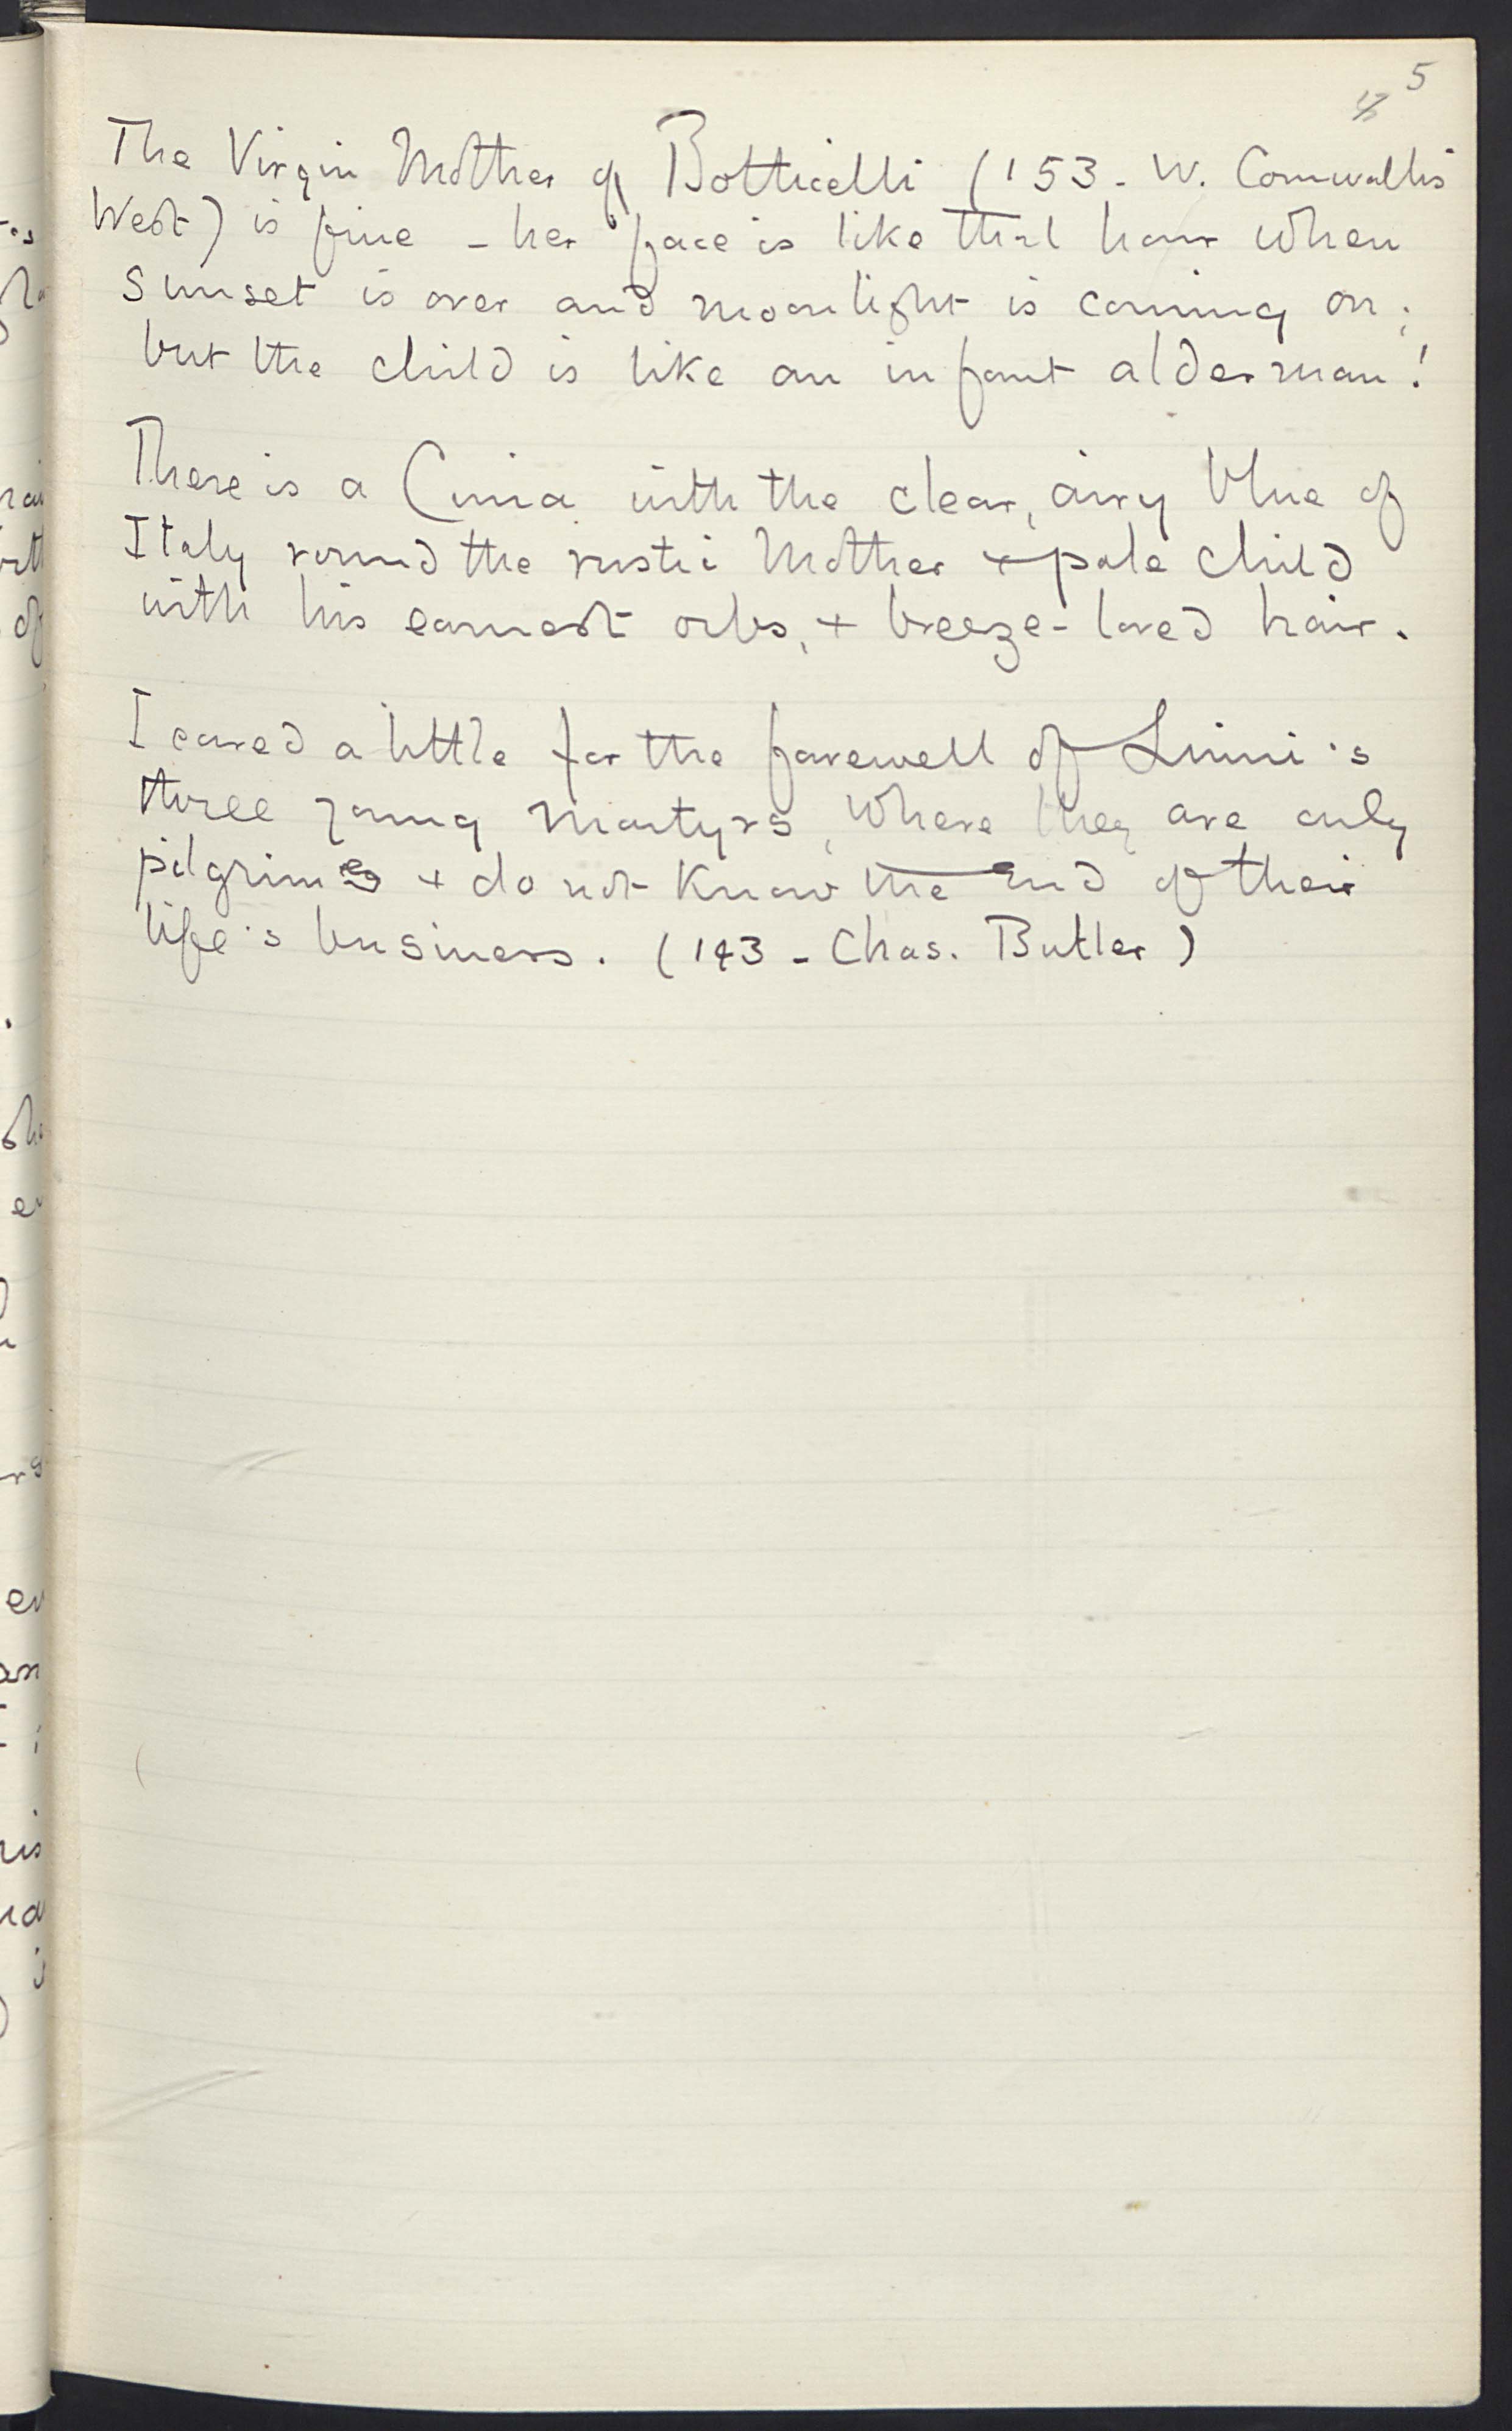 5
The Virgin Mother of Botticelli (153 - W. Cornwallis
West) is fine - her face is like that hour when
sunset is over and moonlight is coming on;
but the child is like an infant alderman!
There is a Cima with the clear, airy blue of
Italy round the rustic Mother + pale child
with his earnest orbs, + breeze-loved hair.
I cared a little for the farewell of Luini's
three young Martyrs, where they are only
pilgrims + do not know the end of their
life's business. (143 - Chas. Butler)